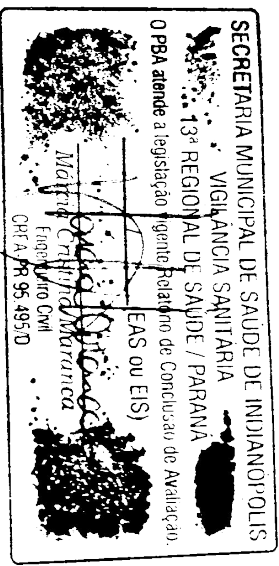 SECRETARIA MUNICIPAL DE SAÚDE DE INDIANÓPOLIS
VIGILÂNCIA SANITÁRIA
13ª REGIONAL DE SAÚDE / PARANÁ
O PBA atende a legislação vigente. Relatório de Conclusão de Avaliação.
(EAS ou EIS)
Engenheiro Civil
CREA PR 95.495/D